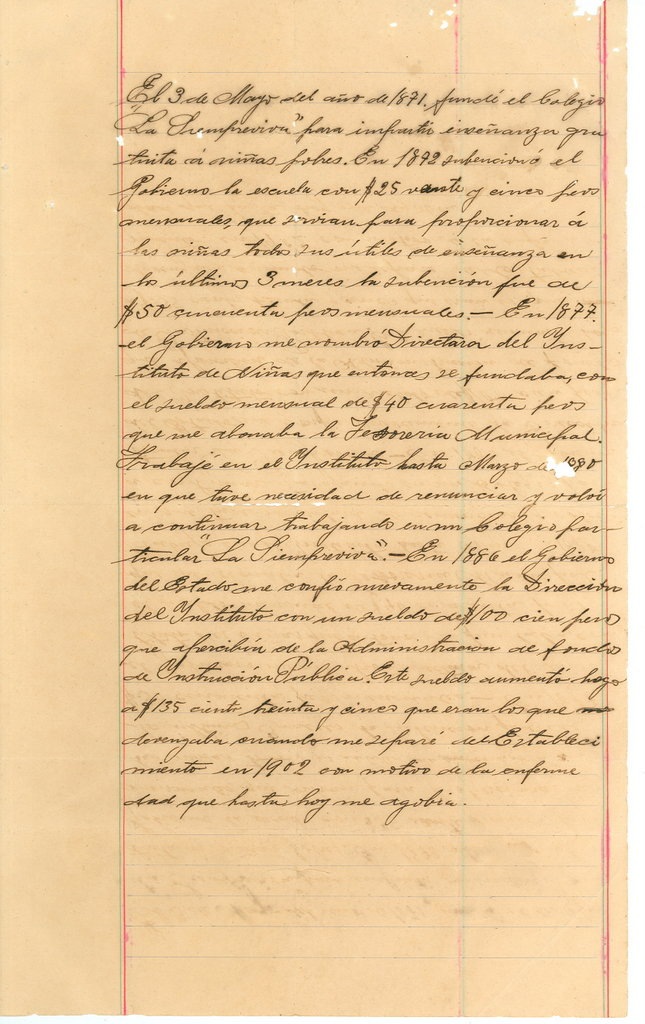 El 3 de Mayo del año de 1871. fundé el Colegio
"La Siempreviva" para impartir enseñanza gra
tuita á niñas pobres. En 1872 subencionó el
Gobierno la escuela con $25 veinte y cinco pesos
mensuales, que servian para proporcionar á
las niñas todos sus útiles de enseñanza en
los últimos 3 meses la subención fue de
$50 cincuenta pesos mensuales.— En 1877.
el Gobierno me nombró Directora del Yns-
tituto de Niñas que entonces se fundaba, con
el sueldo mensual de $40 cuarenta pesos
que me abonaba la Tesoreria Municipal.
Trabajé en el Ynstituto hasta Marzo de 1880
en que tuve necesidad de renunciar y volví
a continuar trabajando en mi Colegio par-
ticular "La Siempreviva".— En 1886 el Gobierno
del Estado me confió nuevamente la Dirección
del Ynstituto con un sueldo de $100 cien pesos
que apercibía de la Administracion de fondos
de Ynstrucción Pública. Este sueldo aumentó
a $135 ciento treinta y cinco que eran los que
devengaba cuando me separé del Estableci
miento en 1902 con motivo de la enferme
dad que hasta hoy me agobia.